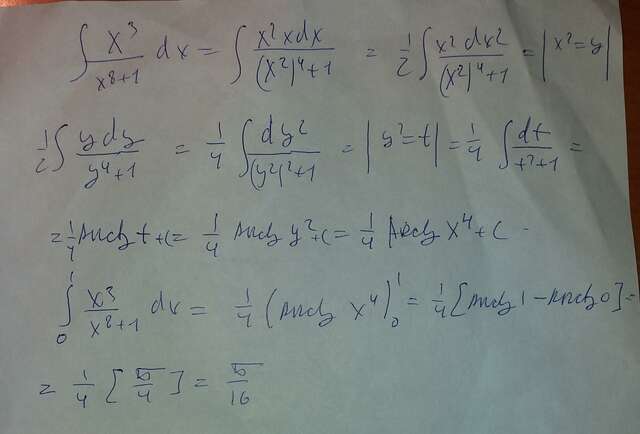 ∫ x³/(x⁸+1) dx = ∫ x² x dx/((x²)⁴+1) = 1/2 ∫ x² dx²/((x²)⁴+1) = | x² = y |
1/2 ∫ y dy/(y⁴+1) = 1/4 ∫ dy²/((y²)²+1) = | y² = t | = 1/4 ∫ dt/(t²+1) =
= 1/4 Arctg t + C = 1/4 Arctg y² + C = 1/4 Arctg x⁴ + C
∫₀¹ x³/(x⁸+1) dx = 1/4 (Arctg x⁴)₀¹ = 1/4 [Arctg 1 − Arctg 0] =
= 1/4 [π/4] = π/16